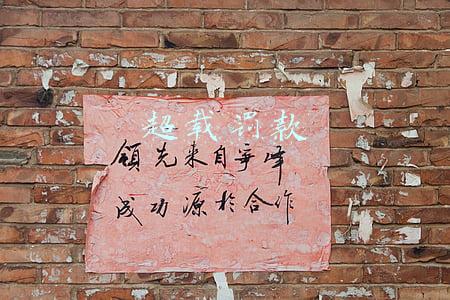 超载罚款
领先来自争峰
成功源於合作